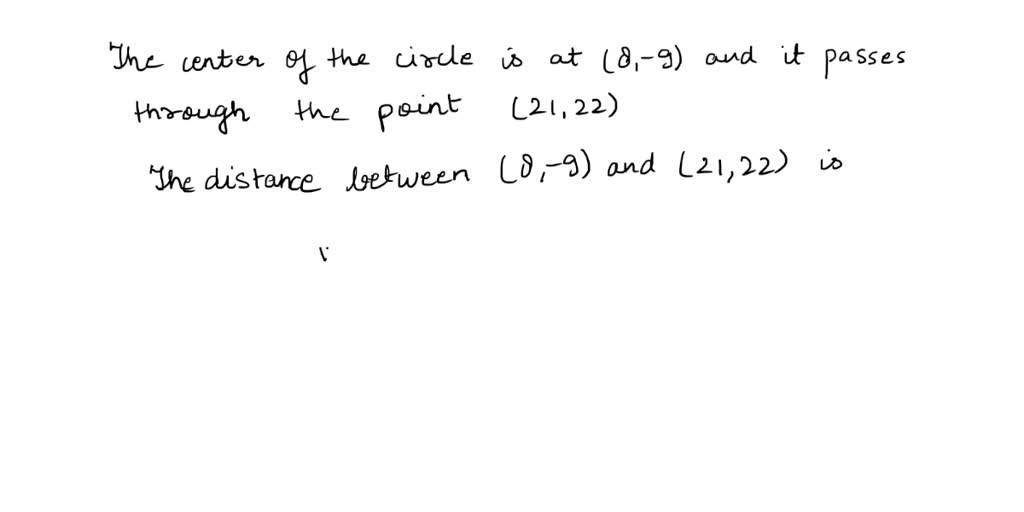 The center of the circle is at (8,-9) and it passes
through the point (21,22)
The distance between (8,-9) and (21,22) is